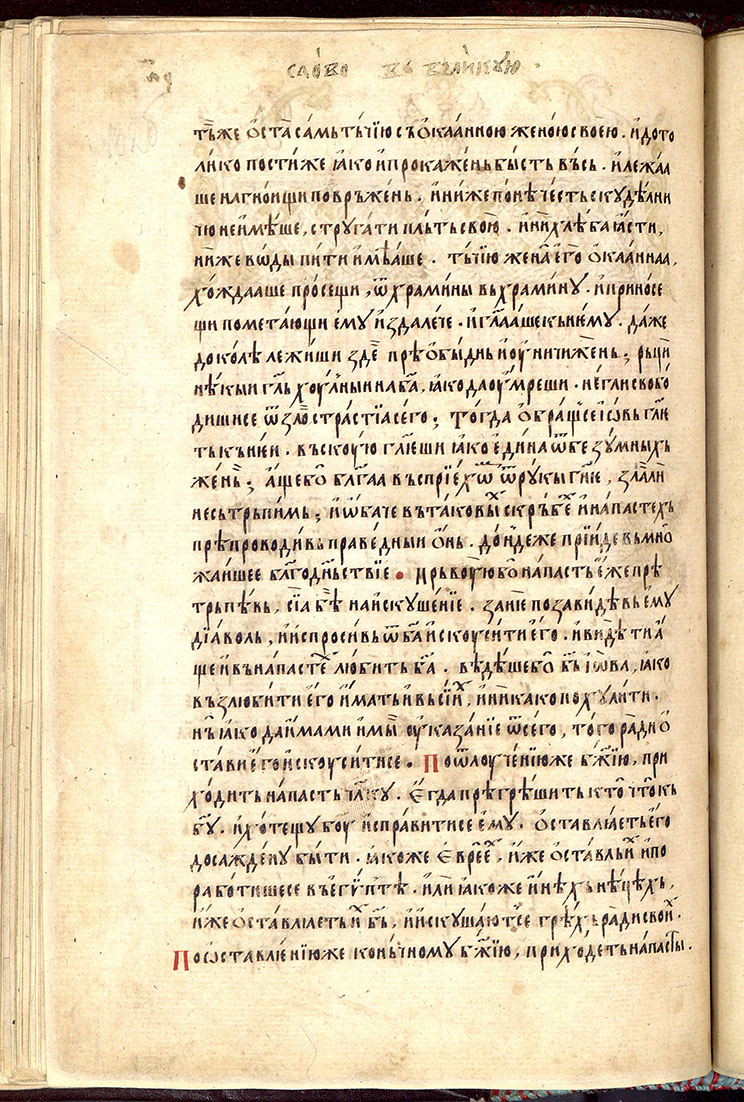 сло́во въ вели́кꙋю
тѣ́мже ѻ̓ста̀ са́мь ты́чїю съ ѻ̓каа́нною жено́ю свое́ю. и҆ до то
ли́ко пости́же ꙗ҆́ко и҆ прокаже́нь бы́сть въ́сь. и҆ лежаа́
ше на гно́ищи повръ́жень. и҆ ни́же понѐ че́сть скꙋдѣ́лни
чꙋю не и҆мѣ́ше, стрꙋга́ти пль́ть свою̀. и҆ ни хлѣ́ба ꙗ҆́сти,
ни́же вѡды̀ пи́ти и҆мѣ́аше. ты́чїю жена̀ е҆го̀ ѻ̓каа́ннаа,
хо́ждааше просе́щи, ѿ хра́мины въ хра́минꙋ. и҆ приносе́
щи помета́ющи е҆мꙋ̀ и҆здале́че. и҆ гл҃аа́ше къ не́мꙋ. да́же
доко́лѣ лежи́ши здѐ прѣѻби́днь и҆ ᲂу҆ничиже́нь; рьцѝ
нѣ́кыи гл҃ь хꙋ́лныи на ба҃, ꙗ҆́ко да ᲂу҆́мреши. не́гли свобо
ди́шисе ѿ зло́страстїа сего̀; тогда̀ ѻ̓бра́щьсе і҆́ѡвь гл҃ю
ть къ не́и. въскꙋ́ю гл҃еши ꙗ҆́ко е҆ди́на ѿ безꙋ́мныхь
же́нь; а҆́ще бо̀ бл҃га́а въспрїе́хѡм ѿ рꙋкы̀ гн҃е, зла́а ли
не сьтрь́пимь; и҆ ѻ̓ба́че въ та́ковыⷯ скръ́беⷯ и҆ напа́стехь
прѣпроводи́вь пра́ведныи ѻ̓́нь. до́ндеже прїи́де въ мно
жа́ишее бл҃годⷩ҇ьствїе. прь́вᲂую бо̀ напа́сть ю҆́же прѣ
трьпѣ́вь, сїа̀ бѣ̀ на и҆скꙋше́нїе. зане́ позави́дѣвь е҆мꙋ̀
дїа́воль, и҆ и҆спроси́вь ѿ ба҃ и҆скᲂуси́ти е҆го̀. и҆ ви́дѣти а҆́
ще и҆ въ напа́стеⷯ лю́бить ба҃. вѣ́дѣше бо̀ б҃ь і҆́ѡва, ꙗ҆́ко
възлюби́ти е҆го̀ и҆́мать и҆ въ сиⷯ, и҆ ни́како похꙋ́лити.
нь̀ ꙗ҆́ко да и҆́мами и҆ мы̀ ᲂу҆каза́нїе ѿ сего̀, то́го ра́ди ѻ̓
ста́ви е҆го̀ и҆скᲂуси́тисе. По ѿлꙋче́нїю же бж҃їю, при
хо́дить напа́сть чл҃кꙋ. Е҆гда̀ прѣгрѣ́шить кто̀ что̀ къ
бꙋ҃. и҆ хоте́щꙋ бᲂу҃ и҆спра́витисе е҆мꙋ̀. ѻ̓ставлꙗ́еть е҆го̀
досажде́нꙋ бы́ти. ꙗ҆́коже е҆вре́е, и҆́же ѻ̓ста́вльи и҆ по
рабо́тишесе въ е҆гѵ́птѣ. и҆лѝ ꙗ҆́коже и҆ и҆нѣ́хь нѣ́цѣхь,
и҆́же ѻ̓ставлꙗ́еть и҆ б҃ь, и҆ и҆скꙋша́ютсе грѣ́хь ра́ди свои́ⷯ.
По ѡ҆ставле́нїю же коньчномꙋ бж҃їю, прихо́деть напа́сты.